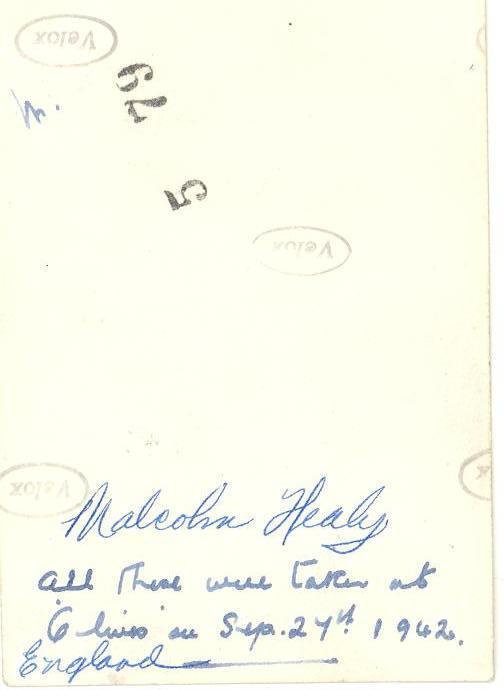 Velox
79
5
Velox
Velox
Malcolm Healy
all these were taken at
on Sep. 27th 1942.
England